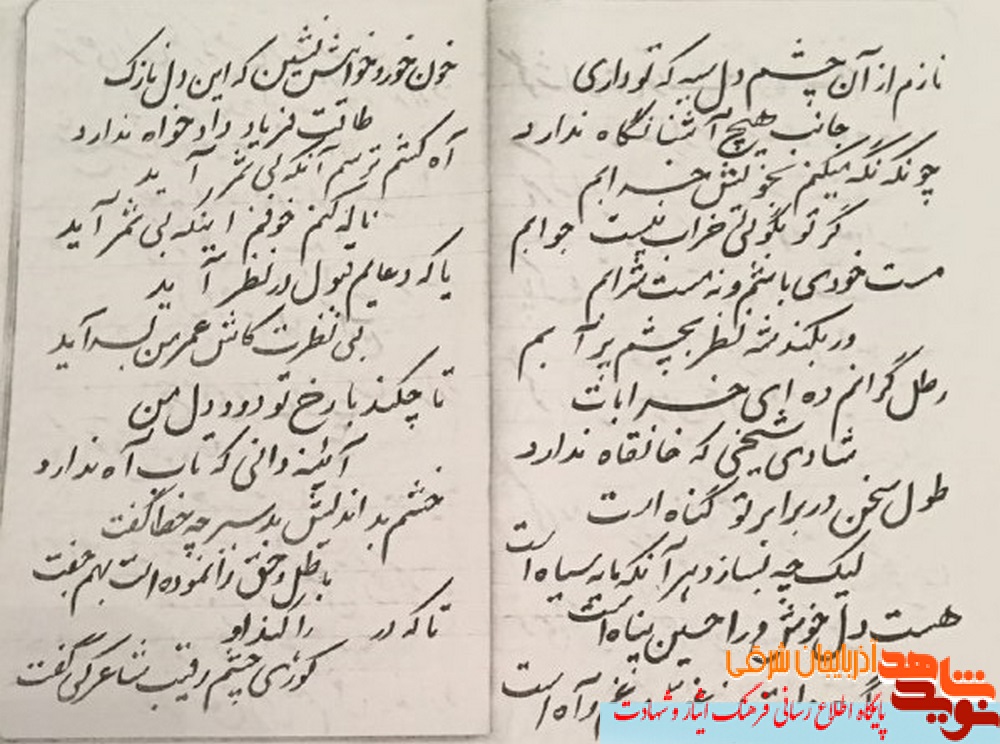 نازم از آن چشم دل سیه که تو داری
جانب هیچ آشنا نگاه ندارد
چونکه نگه میکنم نخوتش خرابم
گر تو نگوئی خراب نیست جوابم
مست خودی باشم و نه مست شرابم
ور بکند شه نظر بچشم پر آبم
رطل گرانم ده ای خرابات
شادی شیخی که خانقاه ندارد
طول سخن در برابر تو گناه است
لیک چه بسازد هر آنکه مایه سیاه است
هست دل خوش و را حسین پناه است
و آه است
خون خور و خامش نشین که این دل نازک
طاقت فریاد دادخواه ندارد
آه کشم ترسم آنکه بی شرر آید
ناله کنم خوفم اینکه بی ثمر آید
یا که دعایم قبول در نظر آید
بی نظرت کاش عمر من بسر آید
تا چکند با رخ تو دود دل من
آئینه دانی که تاب آه ندارد
خشم بد اندیش بد سیر چه خطا گفت
باطل و حق را نموده است بهم جفت
تا که در را کند او
کوری چشم رقیب شاعرکی گفت
نوید شاهد
آذربایجان شرقی
پایگاه اطلاع رسانی فرهنگ ایثار و شهادت